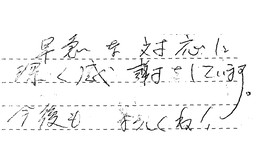 早急な対応に
深く感謝をしています。
今後もよろしくね!